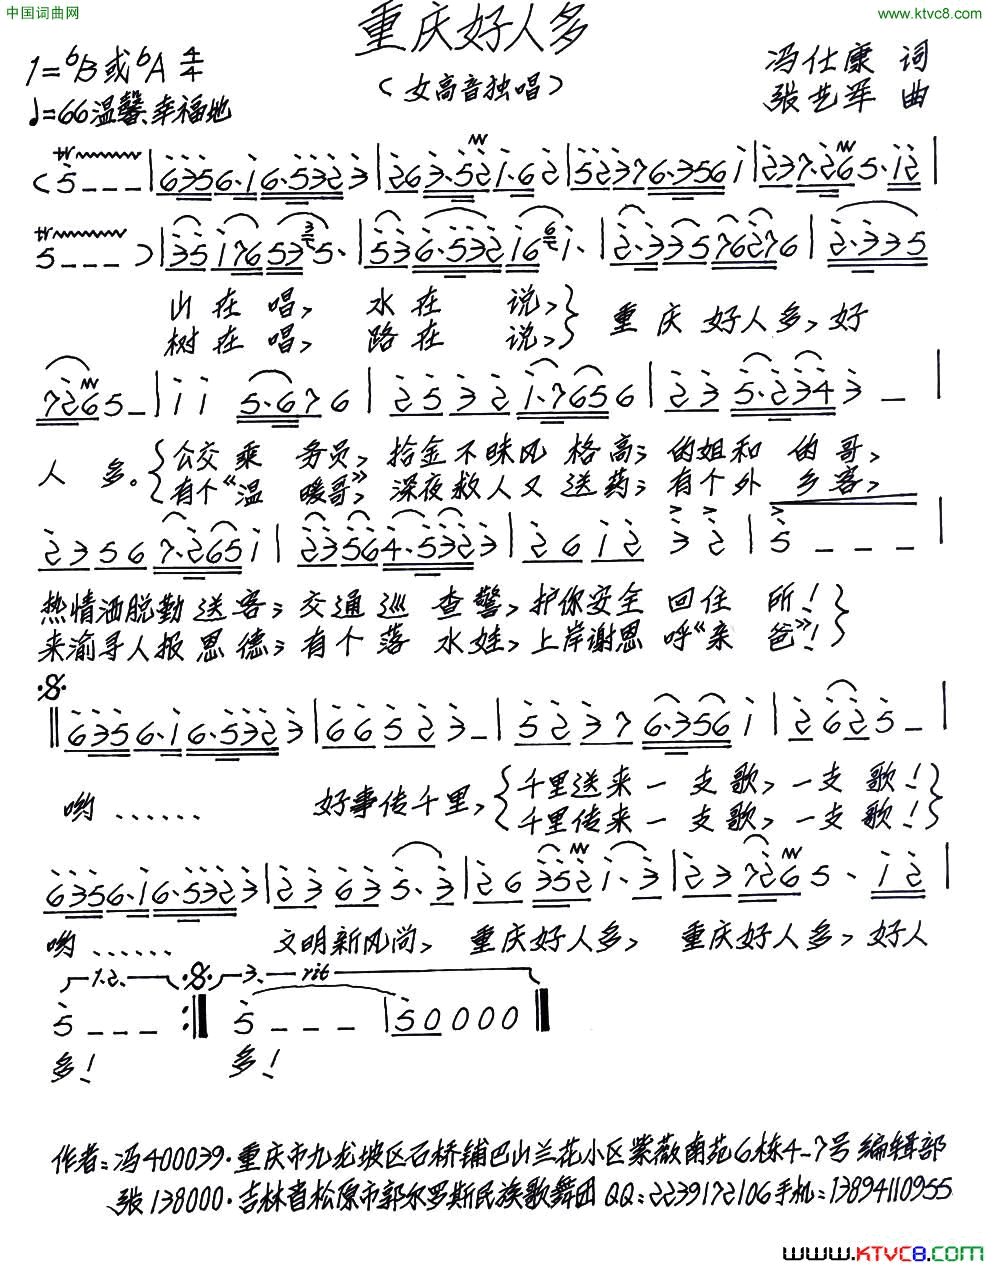 中国词曲网
www.ktvc8.com
重庆好人多
1=♭B或♭A 4/4
冯仕康 词
(女高音独唱)
♩=66温馨、幸福地
张艺军 曲
山在唱, 水在 说,
树在唱, 路在 说,
重庆好人多,好
人多。
公交乘务员,拾金不昧风格高;的姐和的哥,
有个《温暖哥》,深夜救人又送药;有个外乡客,
热情洒脱勤送客;交通巡查警,护你安全回住所!
来渝寻人报恩德;有个落水娃,上岸谢恩呼《亲爸》!
哟...... 好事传千里,
千里送来一支歌,一支歌!
千里传来一支歌,一支歌!
哟...... 文明新风尚, 重庆好人多, 重庆好人多,好人
1.2. 3. rit
多! 多!
作者:冯400039·重庆市九龙坡区石桥铺巴山兰花小区紫薇南苑6栋4-7号 编辑部
张138000·吉林省松原市郭尔罗斯民族歌舞团 QQ:2239172106手机:13894110955
www.KTVC8.com